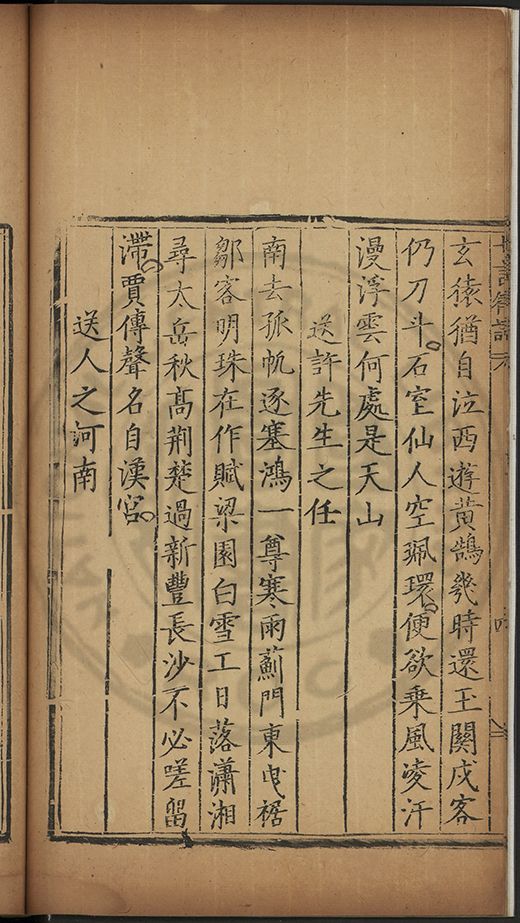 玄猿猶自泣西遊黄鵠幾時還玉關戍客
仍刀斗石室仙人空珮環便欲乗風凌汗
漫浮雲何處是天山
送許先生之任
南去孤帆逐塞鴻一尊寒雨薊門東曳裾
鄒客明珠在作賦梁園白雪工日落瀟湘
尋大岳秋髙荆楚過新豐長沙不必嗟留
滯賈傅聲名自漢宮
送人之河南